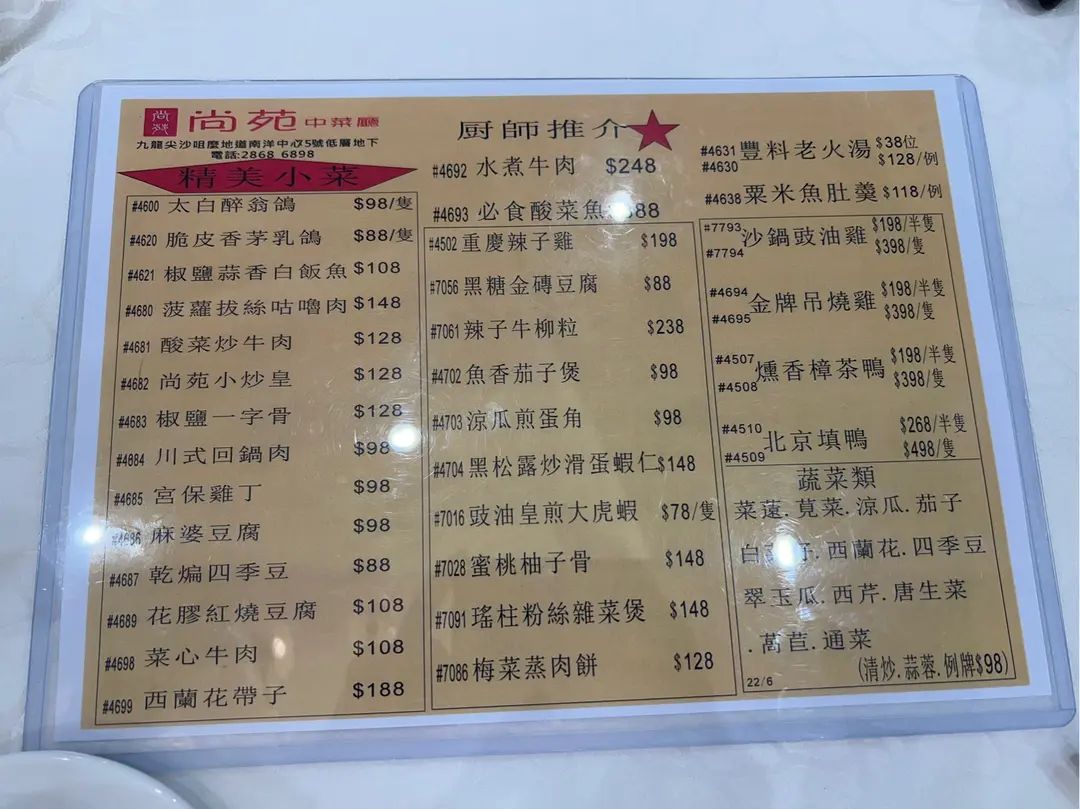 尚苑
尚苑中菜廳
九龍尖沙咀麼地道南洋中心5號低層地下
電話:2868 6898
精美小菜
#4600 太白醉翁鴿 $98/隻
#4620 脆皮香茅乳鴿 $88/隻
#4621 椒鹽蒜香白飯魚 $108
#4680 菠蘿拔絲咕嚕肉 $148
#4681 酸菜炒牛肉 $128
#4682 尚苑小炒皇 $128
#4683 椒鹽一字骨 $128
#4684 川式回鍋肉 $98
#4685 宮保雞丁 $98
#4686 麻婆豆腐 $98
#4687 乾煸四季豆 $88
#4689 花膠紅燒豆腐 $108
#4698 菜心牛肉 $108
#4699 西蘭花帶子 $188
厨師推介
#4692 水煮牛肉 $248
#4693 必食酸菜魚
#4502 重慶辣子雞 $198
#7056 黑糖金磚豆腐 $88
#7061 辣子牛柳粒 $238
#4702 魚香茄子煲 $98
#4703 涼瓜煎蛋角 $98
#4704 黑松露炒滑蛋蝦仁 $148
#7016 豉油皇煎大虎蝦 $78/隻
#7028 蜜桃柚子骨 $148
#7091 瑤柱粉絲雜菜煲 $148
#7086 梅菜蒸肉餅 $128
#4631 豐料老火湯 $38位
#4630 $128/例
#4638 粟米魚肚羹 $118/例
#7793 沙鍋豉油雞 $198/半隻
#7794 $398/隻
#4694 金牌吊燒雞 $198/半隻
#4695 $398/隻
#4507 燻香樟茶鴨 $198/半隻
#4508 $398/隻
#4510 北京填鴨 $268/半隻
#4509 $498/隻
蔬菜類
菜薳.莧菜.涼瓜.茄子
白菜仔.西蘭花.四季豆
翠玉瓜.西芹.唐生菜
.萵苣.通菜
(清炒.蒜蓉.例牌$98)
22/6